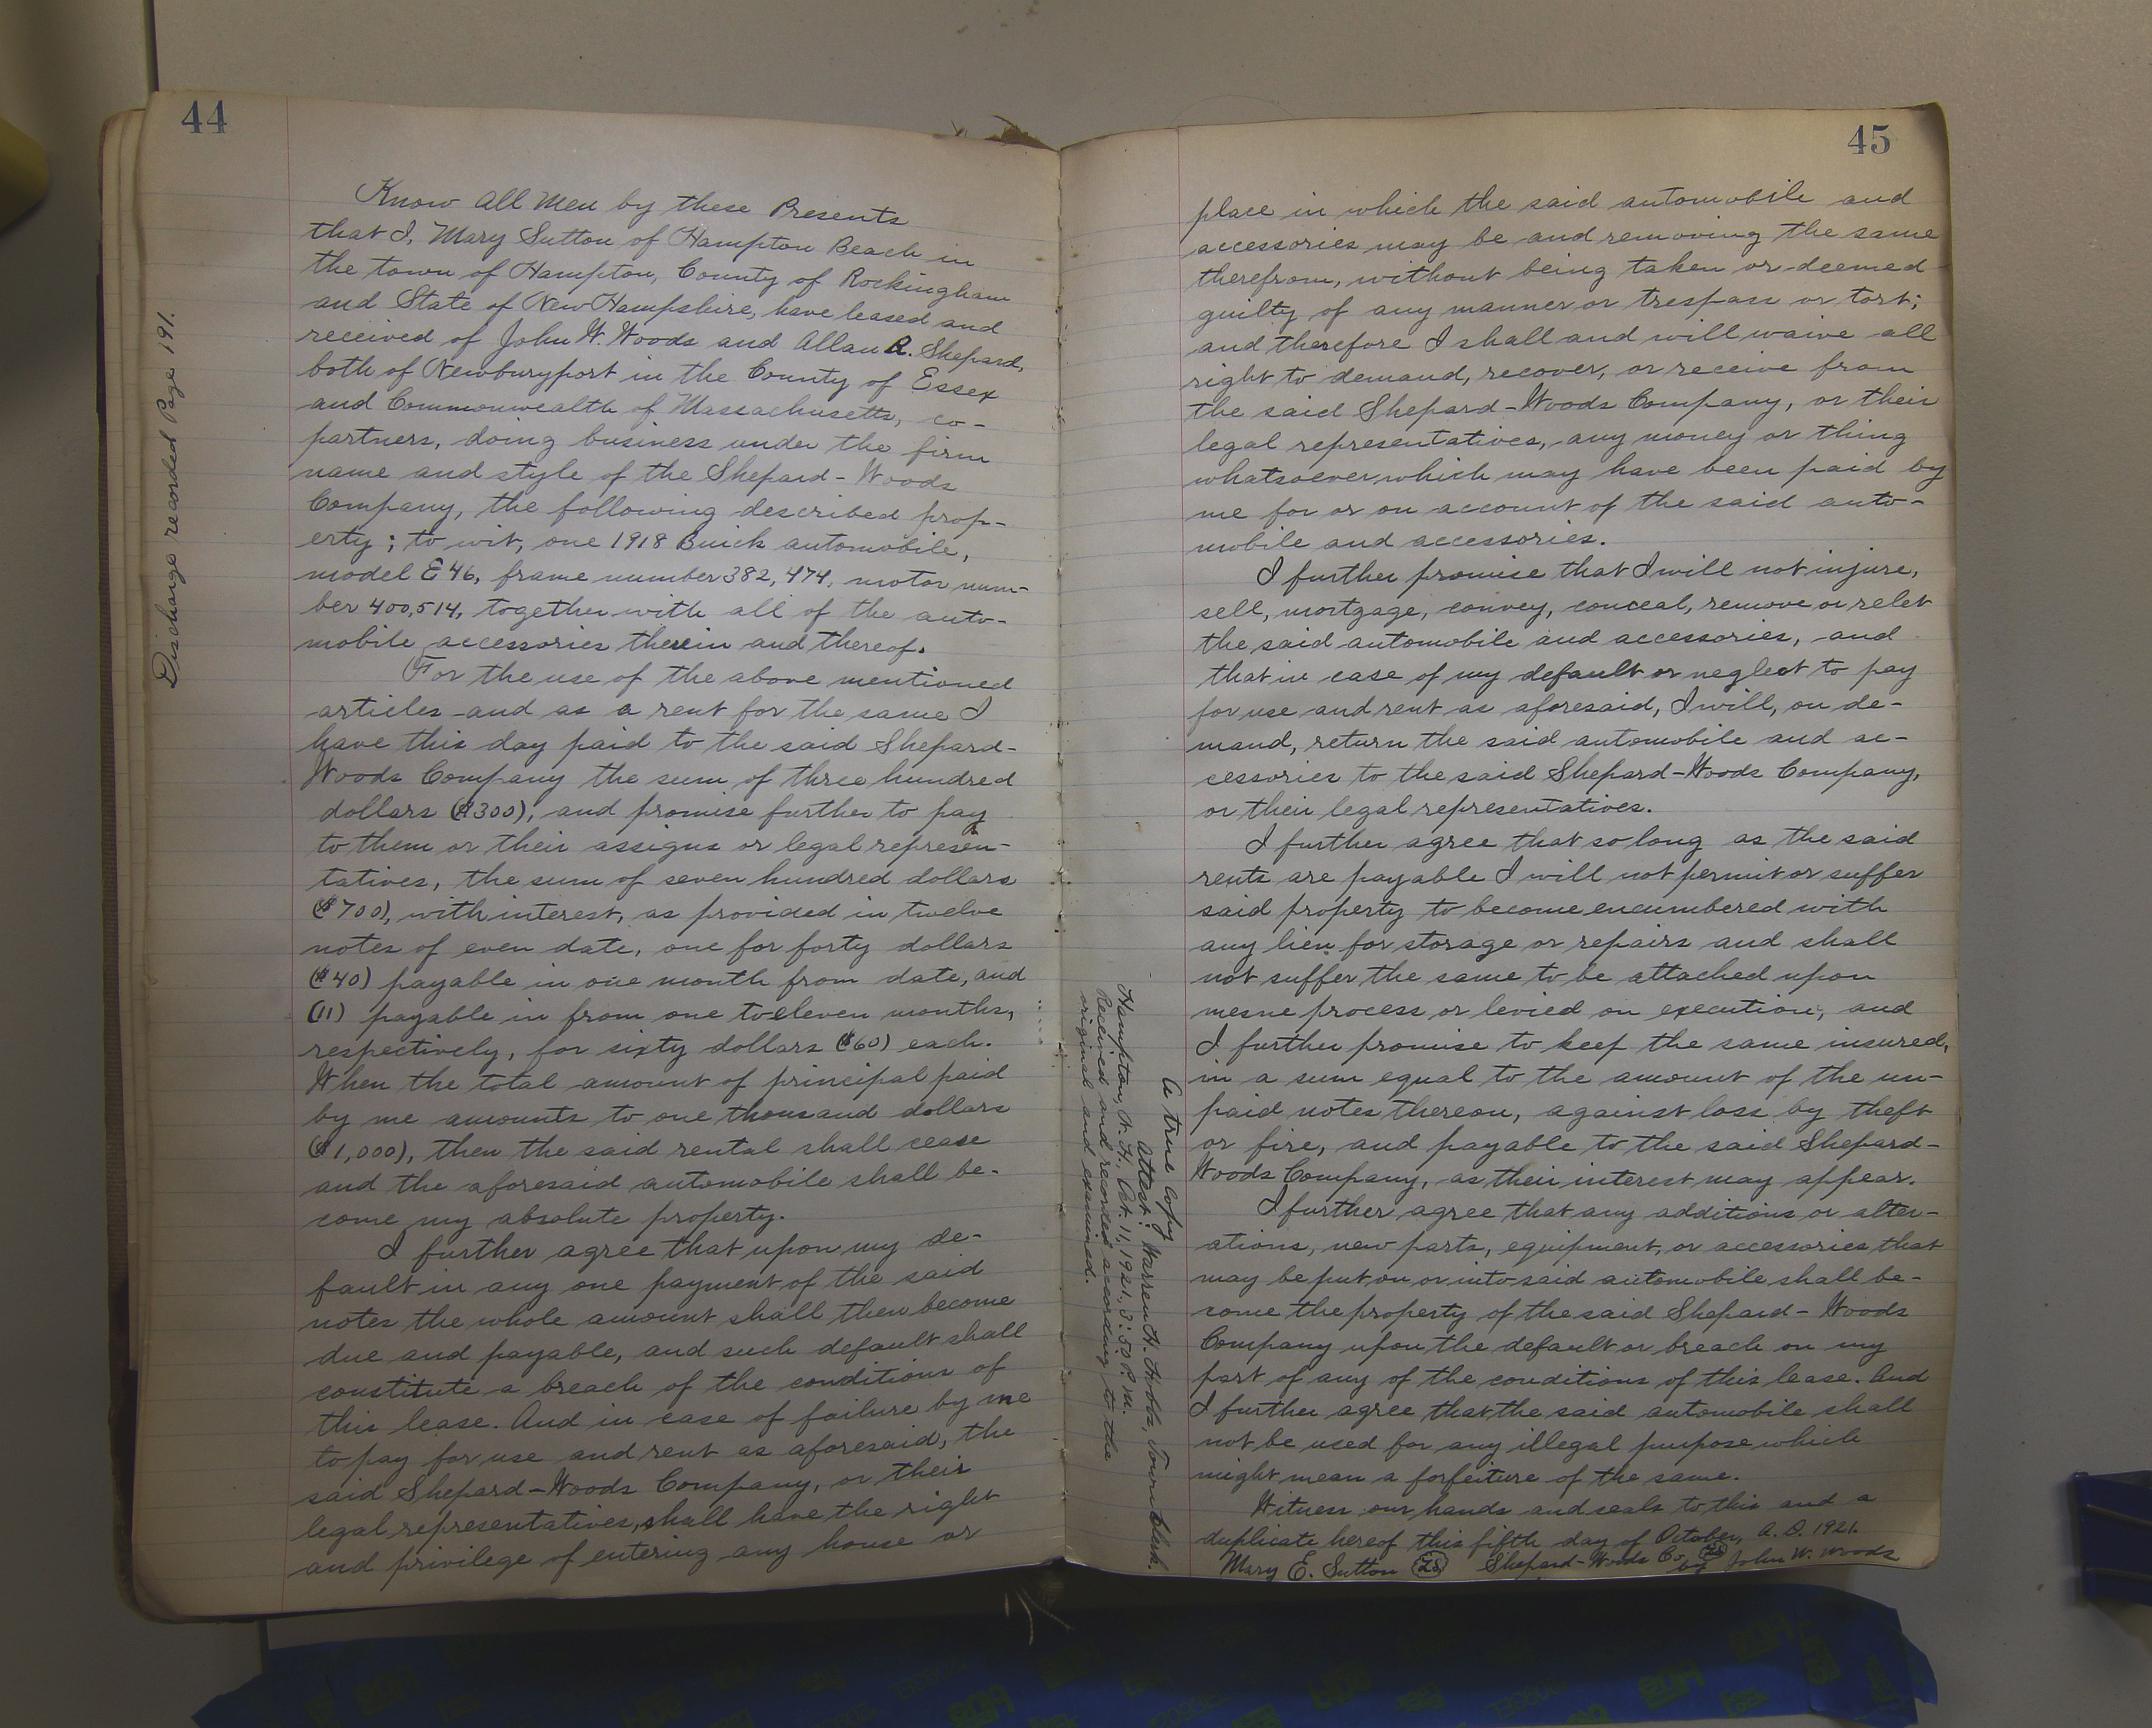 44
Discharge recorded Page 191.
Know all Men by these Presents
that I, Mary Sutton of Hampton Beach in
the town of Hampton, County of Rockingham
and State of New Hampshire, have leased and
received of John W. Woods and Allan R. Shepard,
both of Newburyport in the County of Essex
and Commonwealth of Massachusetts, co-
partners, doing business under the firm
name and style of the Shepard-Woods
Company, the following described prop-
erty; to wit, one 1918 Buick automobile,
model E 46, frame number 382,474, motor num-
ber 400,514, together with all of the auto-
mobile accessories therein and thereof.
For the use of the above mentioned
articles and as a rent for the same I
have this day paid to the said Shepard-
Woods Company the sum of three hundred
dollars ($300), and promise further to pay
to them or their assigns or legal represen-
tatives, the sum of seven hundred dollars
($700), with interest, as provided in twelve
notes of even date, one for forty dollars
($40) payable in one month from date, and
(11) payable in from one to eleven months,
respectively, for sixty dollars ($60) each.
When the total amount of principal paid
by me amounts to one thousand dollars
($1,000), then the said rental shall cease
and the aforesaid automobile shall be-
come my absolute property.
I further agree that upon my de-
fault in any one payment of the said
notes the whole amount shall then become
due and payable, and such default shall
constitute a breach of the conditions of
this lease. And in case of failure by me
to pay for use and rent as aforesaid, the
said Shepard-Woods Company, or their
legal representatives, shall have the right
and privilege of entering any house or
45
place in which the said automobile and
accessories may be and removing the same
therefrom, without being taken or deemed
guilty of any manner or trespass or tort;
and therefore I shall and will waive all
right to demand, recover, or receive from
the said Shepard-Woods Company, or their
legal representatives, any money or thing
whatsoever which may have been paid by
me for or on account of the said auto-
mobile and accessories.
I further promise that I will not injure,
sell, mortgage, convey, conceal, remove or relet
the said automobile and accessories, and
that in case of my default or neglect to pay
for use and rent as aforesaid, I will, on de-
mand, return the said automobile and ac-
cessories to the said Shepard-Woods Company,
or their legal representatives.
I further agree that so long as the said
rents are payable I will not permit or suffer
said property to become encumbered with
any lien for storage or repairs and shall
not suffer the same to be attached upon
mesne process or levied on execution, and
I further promise to keep the same insured,
in a sum equal to the amount of the un-
paid notes thereon, against loss by theft
or fire, and payable to the said Shepard-
Woods Company, as their interest may appear.
I further agree that any additions or alter-
ations, new parts, equipment, or accessories that
may be put on or into said automobile shall be-
come the property of the said Shepard-Woods
Company upon the default or breach on my
part of any of the conditions of this lease. And
I further agree that the said automobile shall
not be used for any illegal purpose which
might mean a forfeiture of the same.
Witness our hands and seals to this and a
duplicate hereof this fifth day of October, A.D. 1921.
Mary E. Sutton LS Shepard-Woods Co. LS by John W. Woods
Hampton, N. H., Oct. 11, 1921, 3:50 P.M.
Received and recorded according to the
original and examined.
A true copy
Attest: Warren H. Hobbs, Town Clerk.